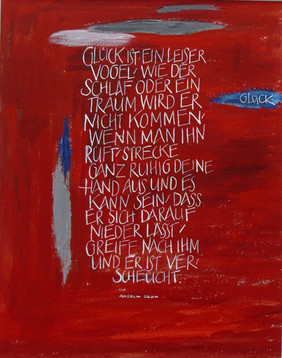 GLÜCK IST EIN LEISER
VOGEL! WIE DER
SCHLAF ODER EIN
TRAUM WIRD ER
NICHT KOMMEN,
WENN MAN IHN
RUFT/ STRECKE
GANZ RUHIG DEINE
HAND AUS UND ES
KANN SEIN, DASS
ER SICH DARAUF
NIEDERLÄSST/
GREIFE NACH IHM
UND ER IST VER/
SCHEUCHT.
GLÜCK